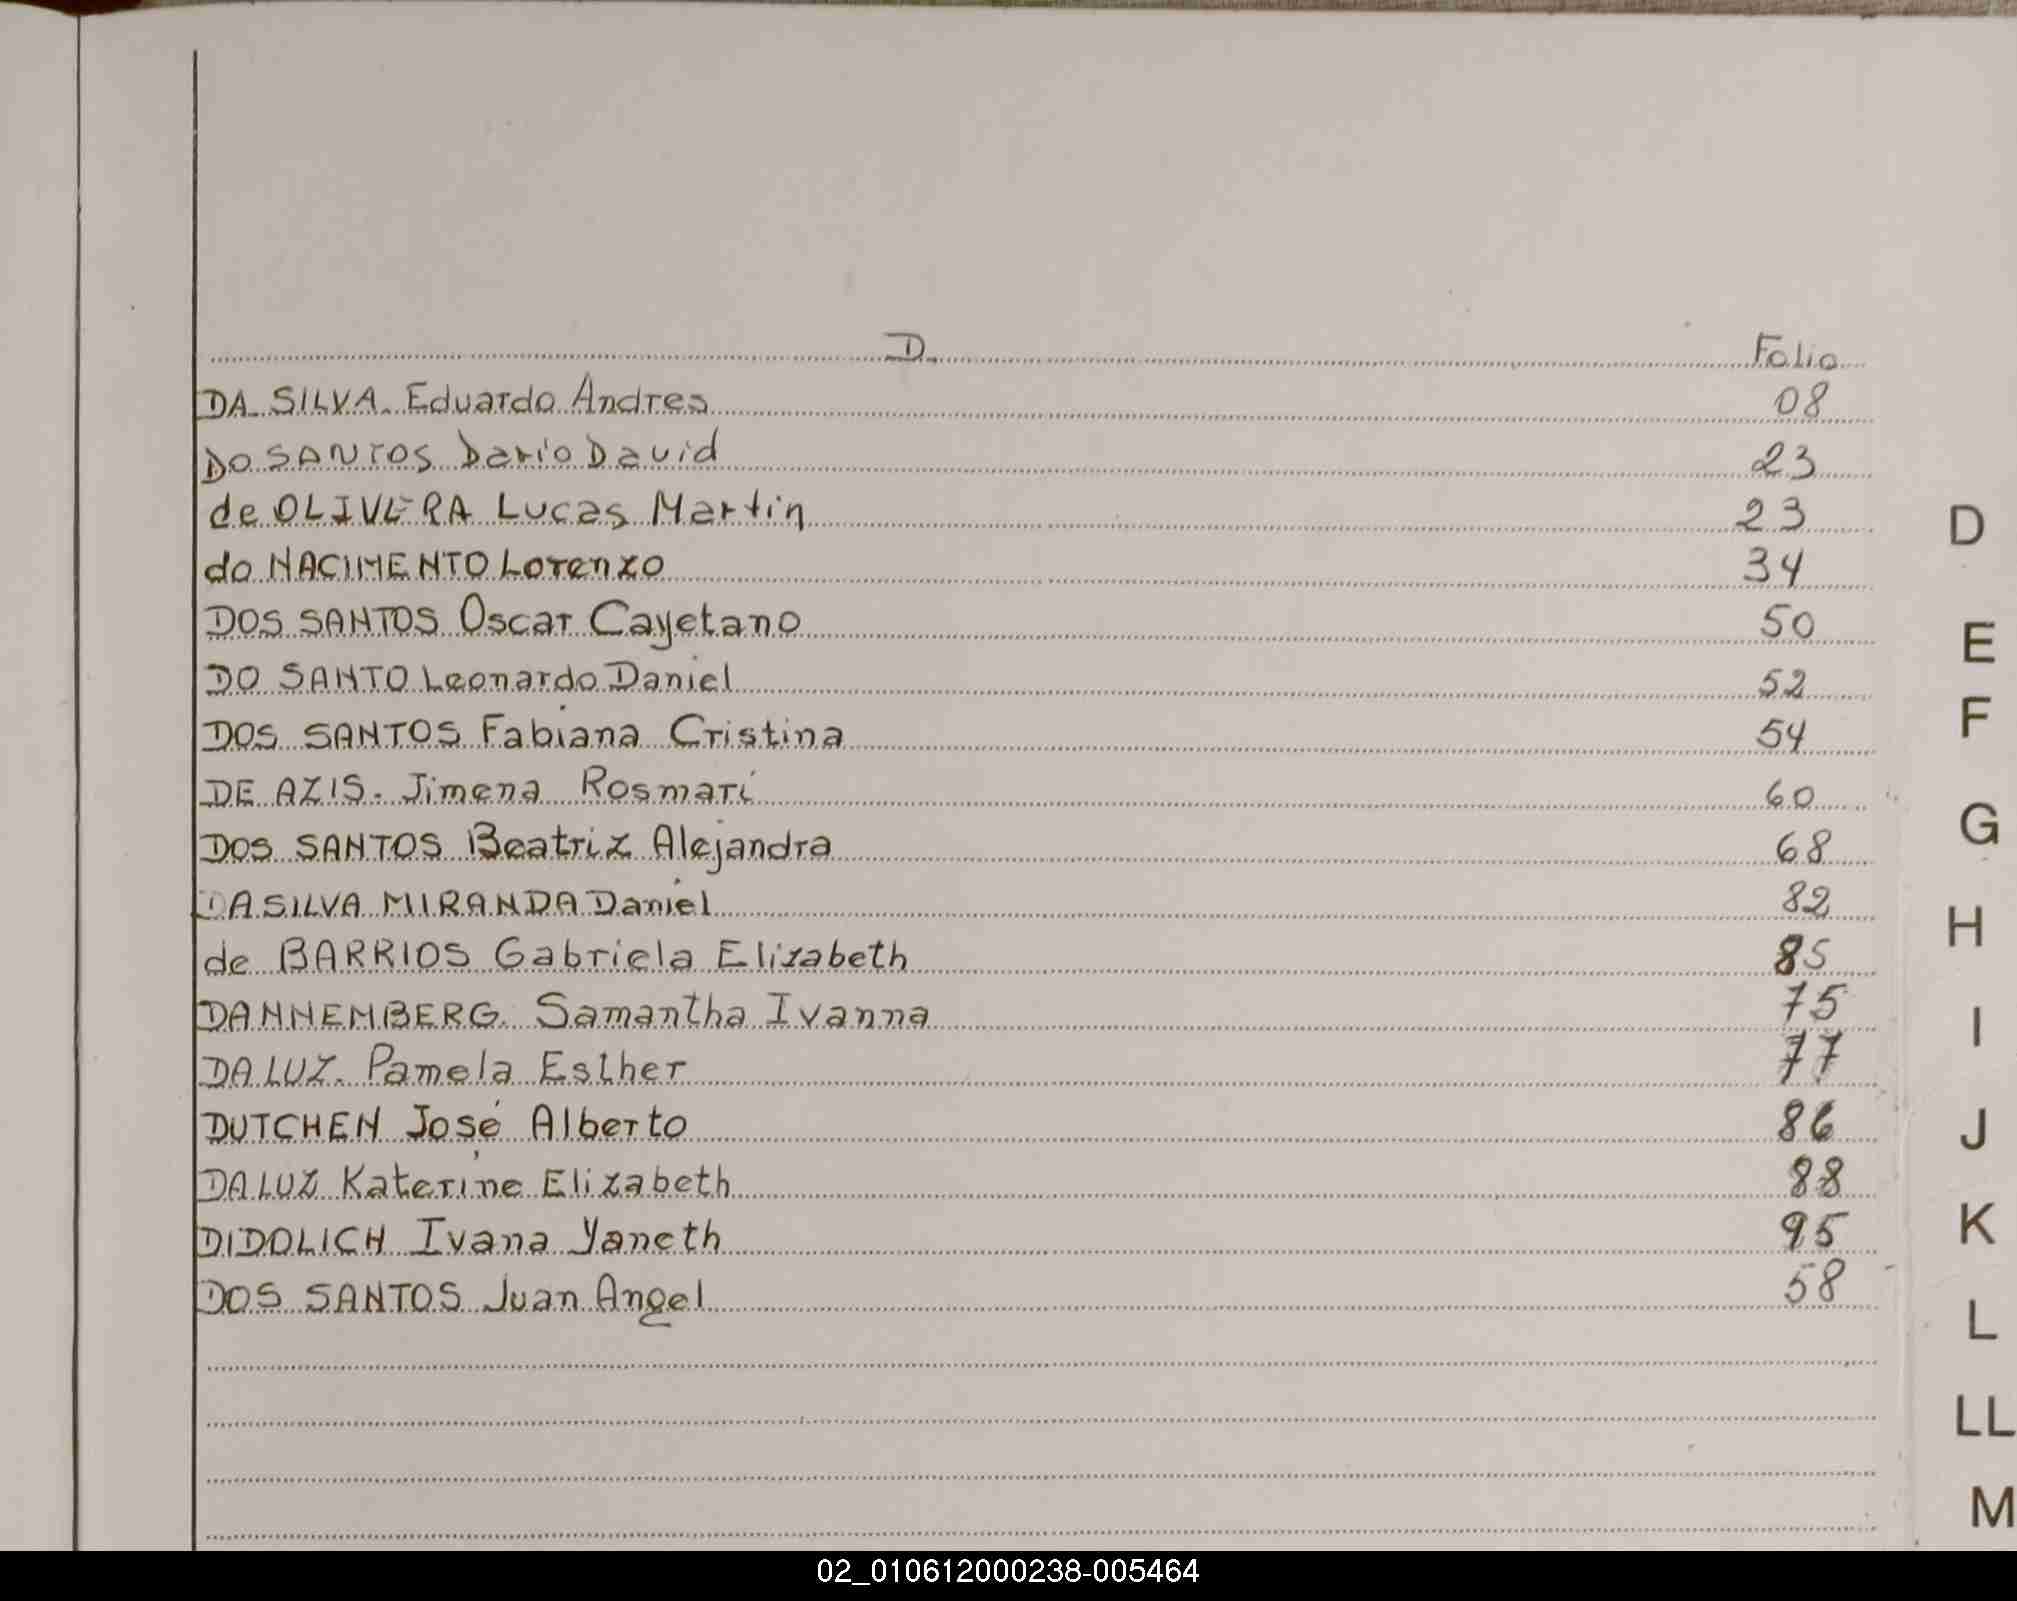 D. Folio
DA SILVA. Eduardo Andres 08
DO SANTOS Dario David 23
de OLIVERA Lucas Martin 23
do NACIMENTO Lorenzo 34
DOS SANTOS Oscar Cayetano 50
DO SANTO Leonardo Daniel 52
DOS SANTOS Fabiana Cristina 54
DE AZIS. Jimena Rosmari 60
DOS SANTOS Beatriz Alejandra 68
DA SILVA MIRANDA Daniel 82
de BARRIOS Gabriela Elizabeth 85
DANNEMBERG. Samantha Ivanna 75
DA LUZ. Pamela Esther 77
DUTCHEN José Alberto 86
DA LUZ Katerine Elizabeth 88
DIDOLICH Ivana Yaneth 95
DOS SANTOS Juan Angel 58
D
E
F
G
H
I
J
K
L
LL
M
02_010612000238-005464